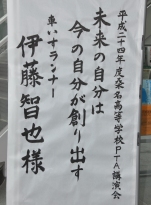 平成二十四年度桑名高等学校PTA講演会
未来の自分は
今の自分が創り出す
車いすランナー
伊藤智也様